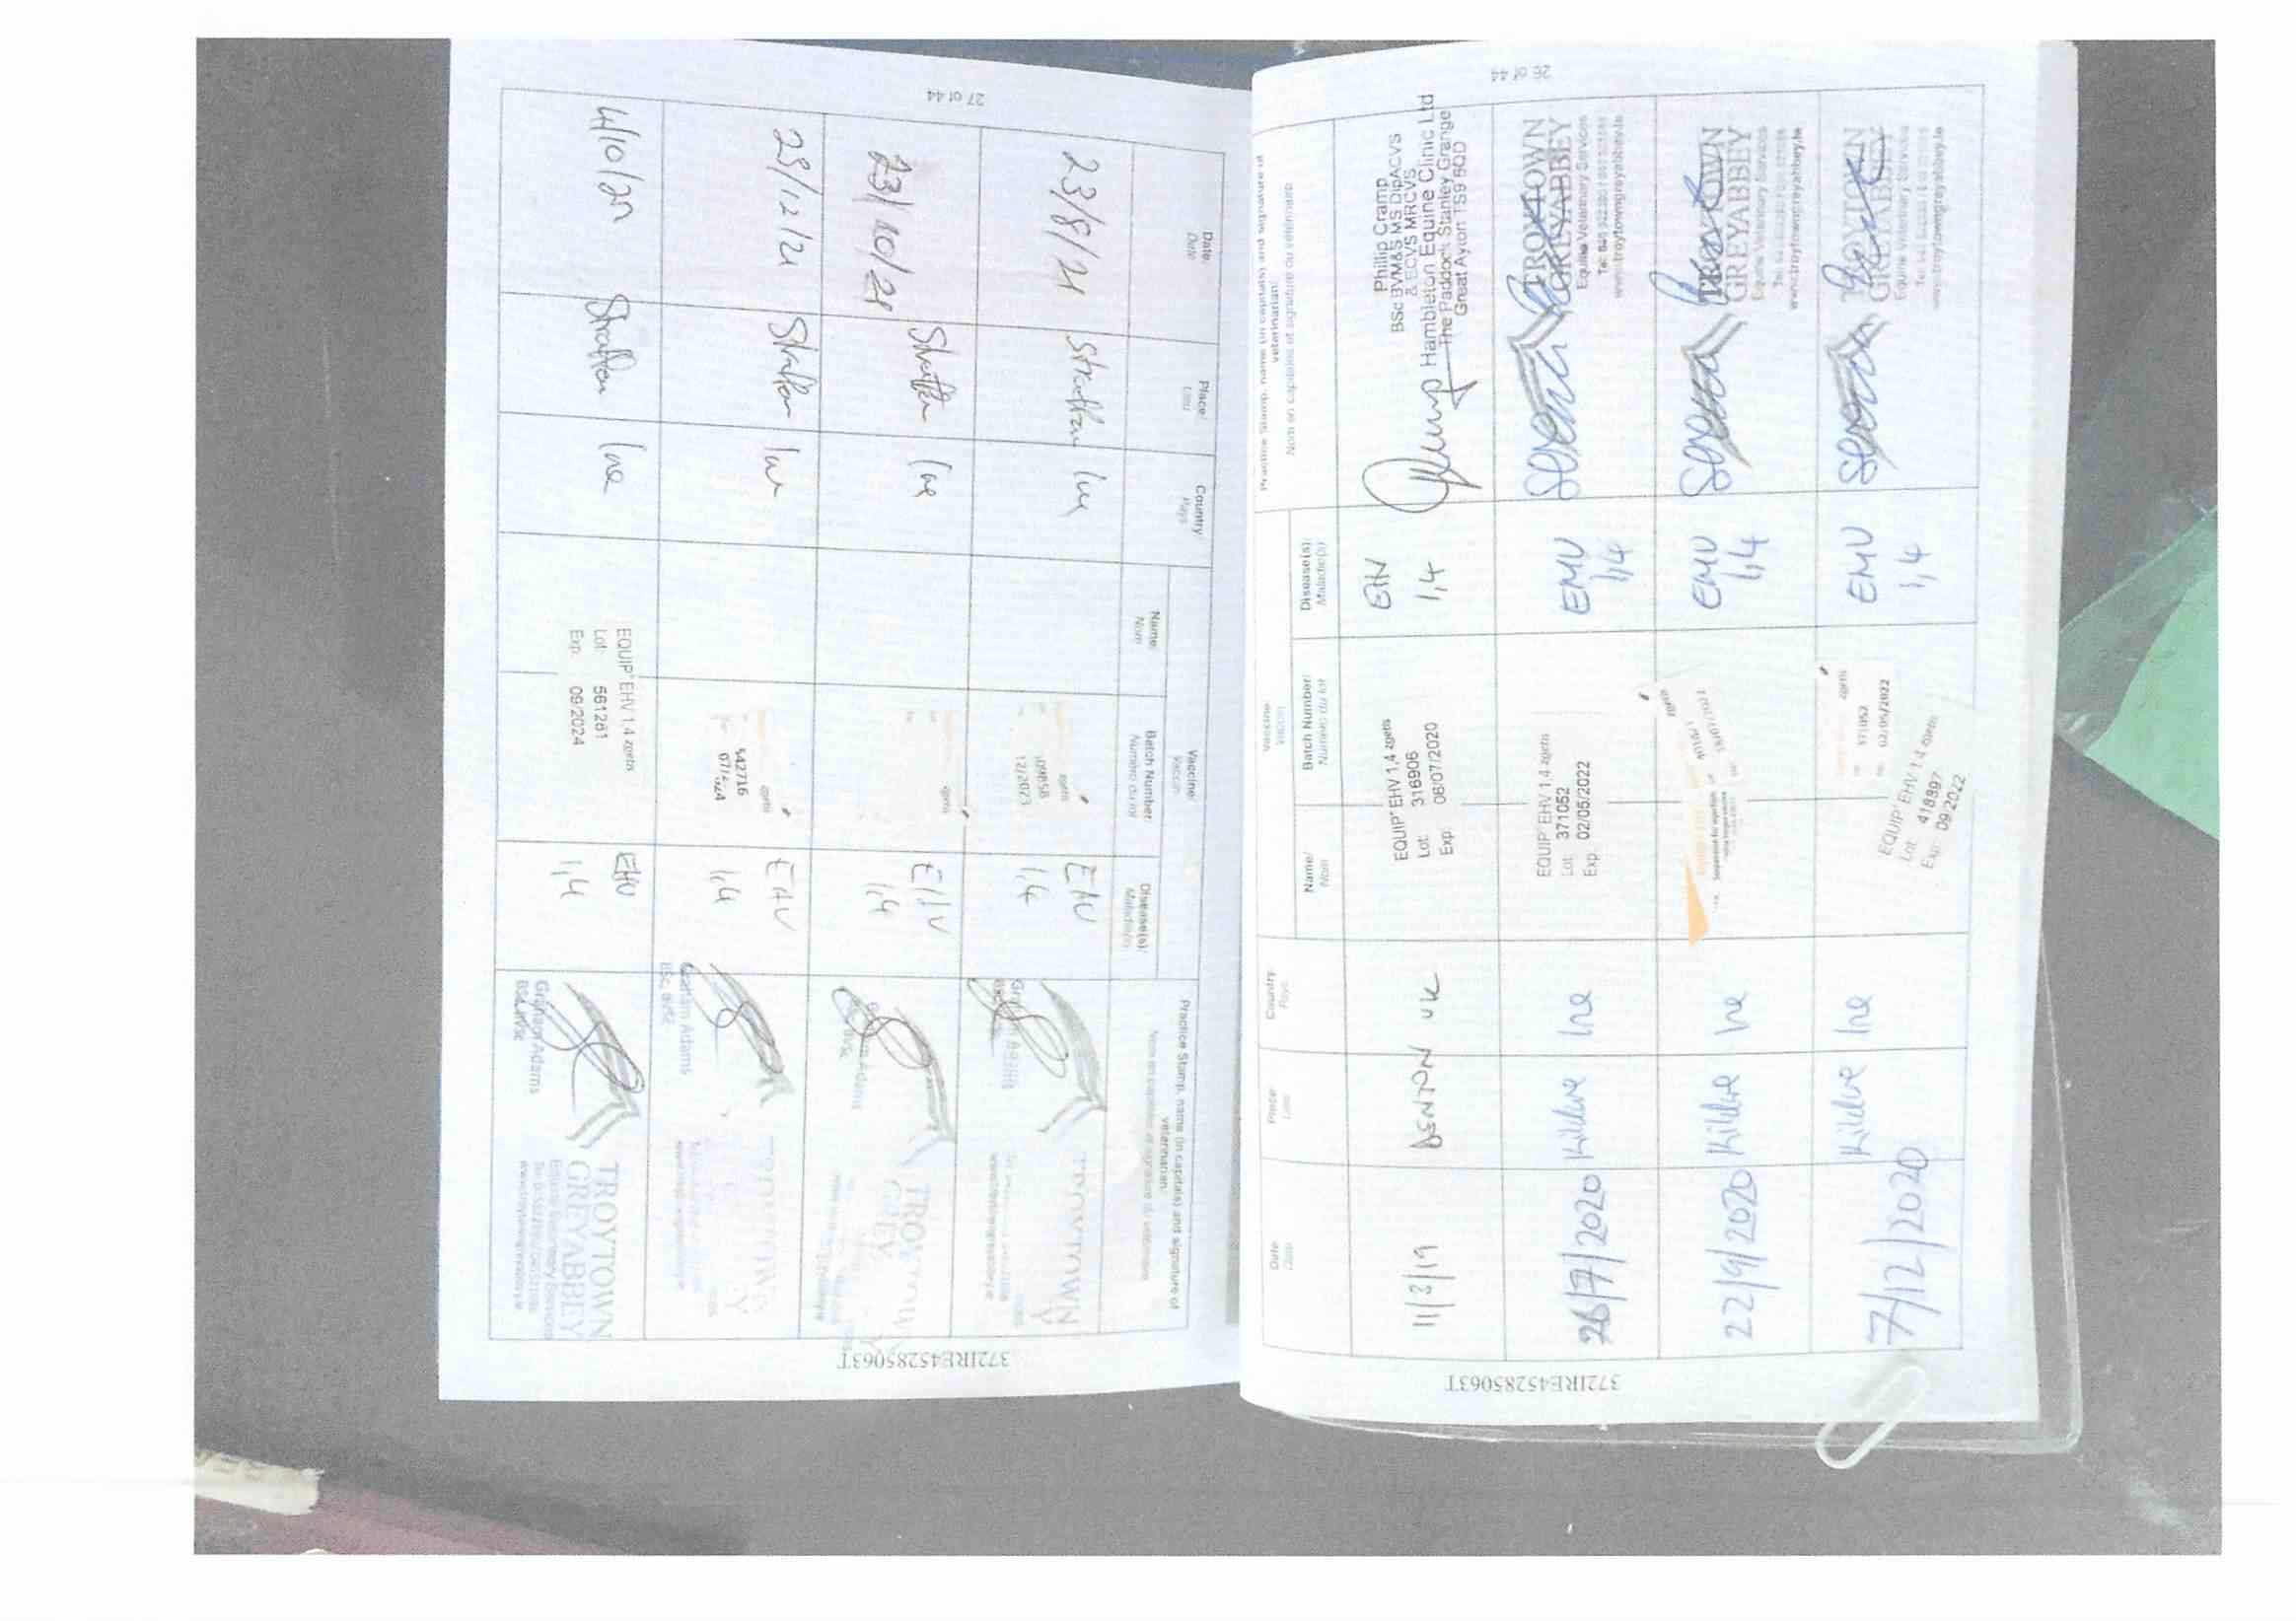 26 of 44
Practice Stamp, name (in capitals) and signature of
veterinarian/
Nom en capitales et signature du vétérinaire
Vaccine
Date/
Place/
Country
Name/
Nom
Batch Number/
Numéro du lot
Disease(s)/
Maladie(s)
11/2/19
UK
EQUIP® EHV 1,4 zoetis
Lot: 316906
Exp: 06/07/2020
EHV
1,4
Philip Cramp
BSc BVM&S MS DipACVS
& ECVS MRCVS
Hambleton Equine Clinic Ltd
The Paddock Stanley Grange
Great Ayton TS9 6QD
26/7/2020
Kildare
Ire
EQUIP® EHV 1,4 zoetis
Lot: 371052
Exp: 02/05/2022
EMV
1,4
TROYTOWN
GREYABBEY
Equine Veterinary Services
www.troytowngreyabbey.ie
22/9/2020
Kildare
Ire
zoetis
EMV
1,4
GREYABBEY
Equine Veterinary Services
www.troytowngreyabbey.ie
7/12/2020
Kildare
Ire
zoetis
371052
02/05/2022
EQUIP® EHV 1,4 zoetis
Lot: 418897
Exp: 09/2022
EMU
1,4
Equine Veterinary Services
www.troytowngreyabbey.ie
372IRE45285063T
27 of 44
Date/
Date
Place/
Lieu
Country
Pays
Vaccine/
Vaccin
Name/
Nom
Batch Number/
Numéro du lot
Disease(s)/
Maladie(s)
Practice Stamp, name (in capitals) and signature of
veterinarian
23/8/21
Straffan
Ire
zoetis
12/2023
EHV
1,4
TROYTOWN
23/10/21
Straffan
Ire
zoetis
EHV
1,4
TROYTOWN
29/12/21
Straffan
Ire
zoetis
542716
EHV
1,4
Graham Adams
BSc, BVSc
4/10/22
Straffan
Ire
EQUIP® EHV 1,4 zoetis
Lot: 561281
Exp: 09/2024
EHV
1,4
Graham Adams
TROYTOWN
GREYABBEY
Equine Veterinary Services
www.troytowngreyabbey.ie
372IRE45285063T